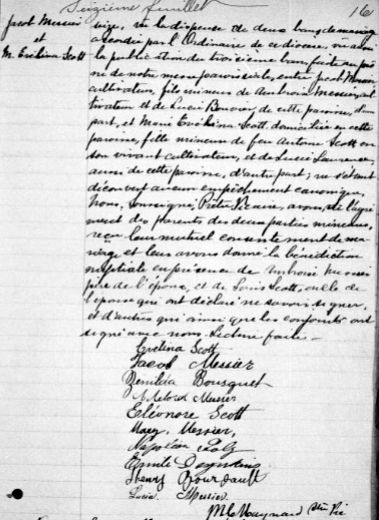 Seizième feuillet
16
Jacob Messier
et
M. Evélina Scott
seize, vu la dispense de deux bans de mariage
accordée par l'Ordinaire de ce diocèse, vu aussi
la publication du troisième ban faite au prô-
ne de notre messe paroissiale, entre Jacob Messier
cultivateur, fils mineur de Ambroise Messier, cul-
tivateur et de Lucie Benoit, de cette paroisse, d'une
part, et Marie Evélina Scott, domiciliée en cette
paroisse, fille mineure de feu Antoine Scott en
son vivant cultivateur, et de Lucie
aussi de cette paroisse, d'autre part; ne s'étant
découvert aucun empêchement canonique,
Nous, soussigné, Prêtre Vicaire, avons, de l'agré-
ment des parents des deux parties mineures,
reçu leur mutuel consentement de ma-
riage et leur avons donné la bénédiction
nuptiale en présence de Ambroise Messier
père de l'époux, et de Louis Scott, oncle de
l'épouse qui ont déclaré ne savoir signer,
et d'autres qui ainsi que les conjoints ont
signé avec nous. Lecture faite.
Evelina Scott
Jacob Messier
Bousquet
Messier
Eléonore Scott
Mary Messier,
Napoléon
Emile
Henry Bourdault
Lucia Messier
Ptre Vic